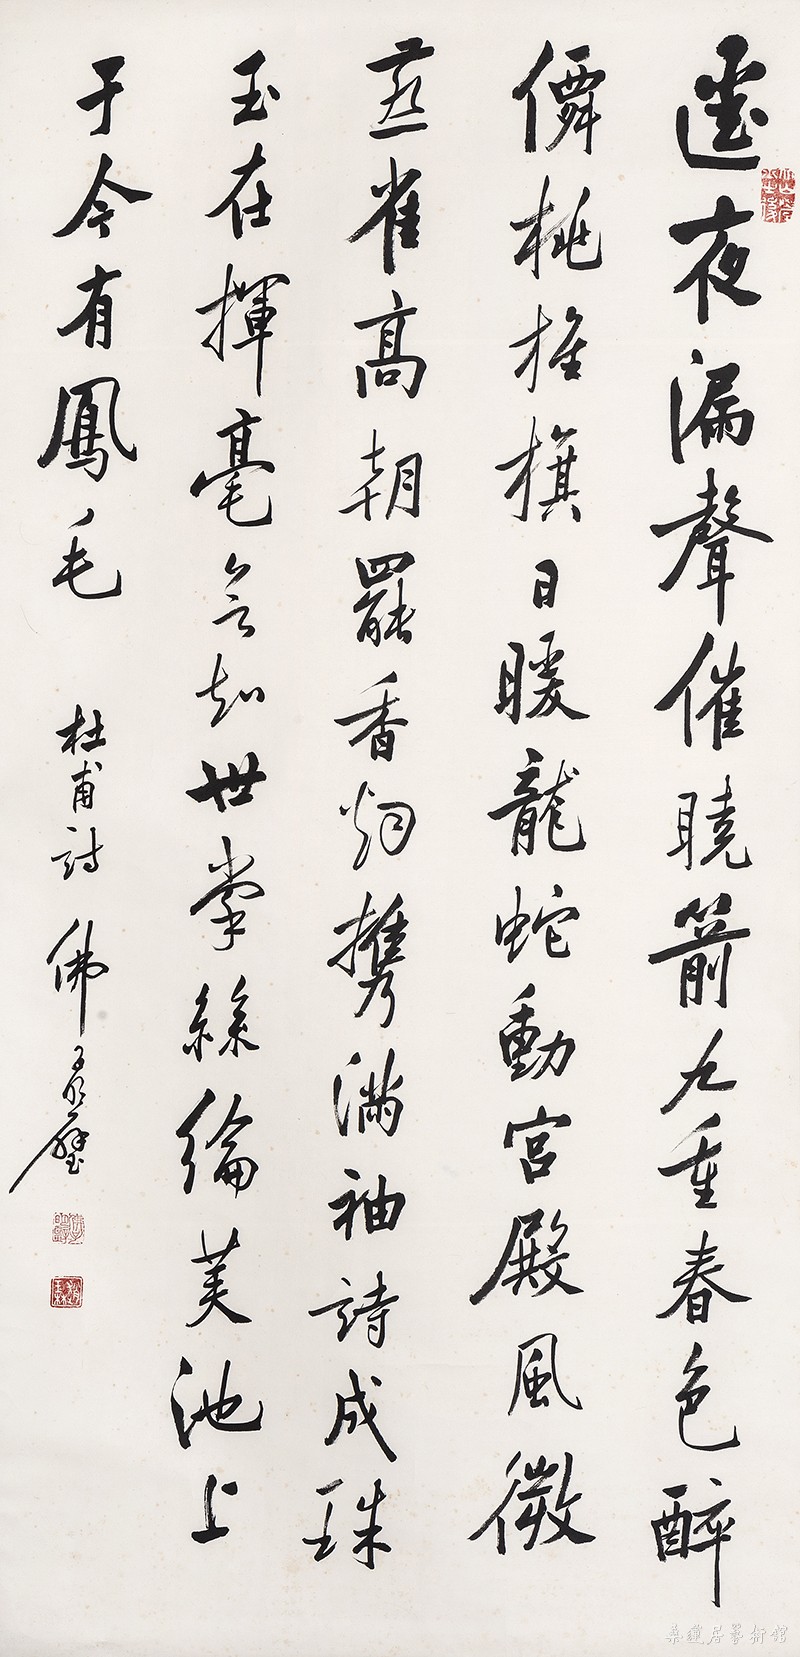 夜漏聲催曉箭九重春色醉
僊桃旌旗日暖龍蛇動宮殿風微
燕雀高朝罷香烟携滿袖詩成珠
玉在揮毫知世掌絲綸美池上
于今有鳳毛 杜甫詩 佛
桑蓮居藝術館